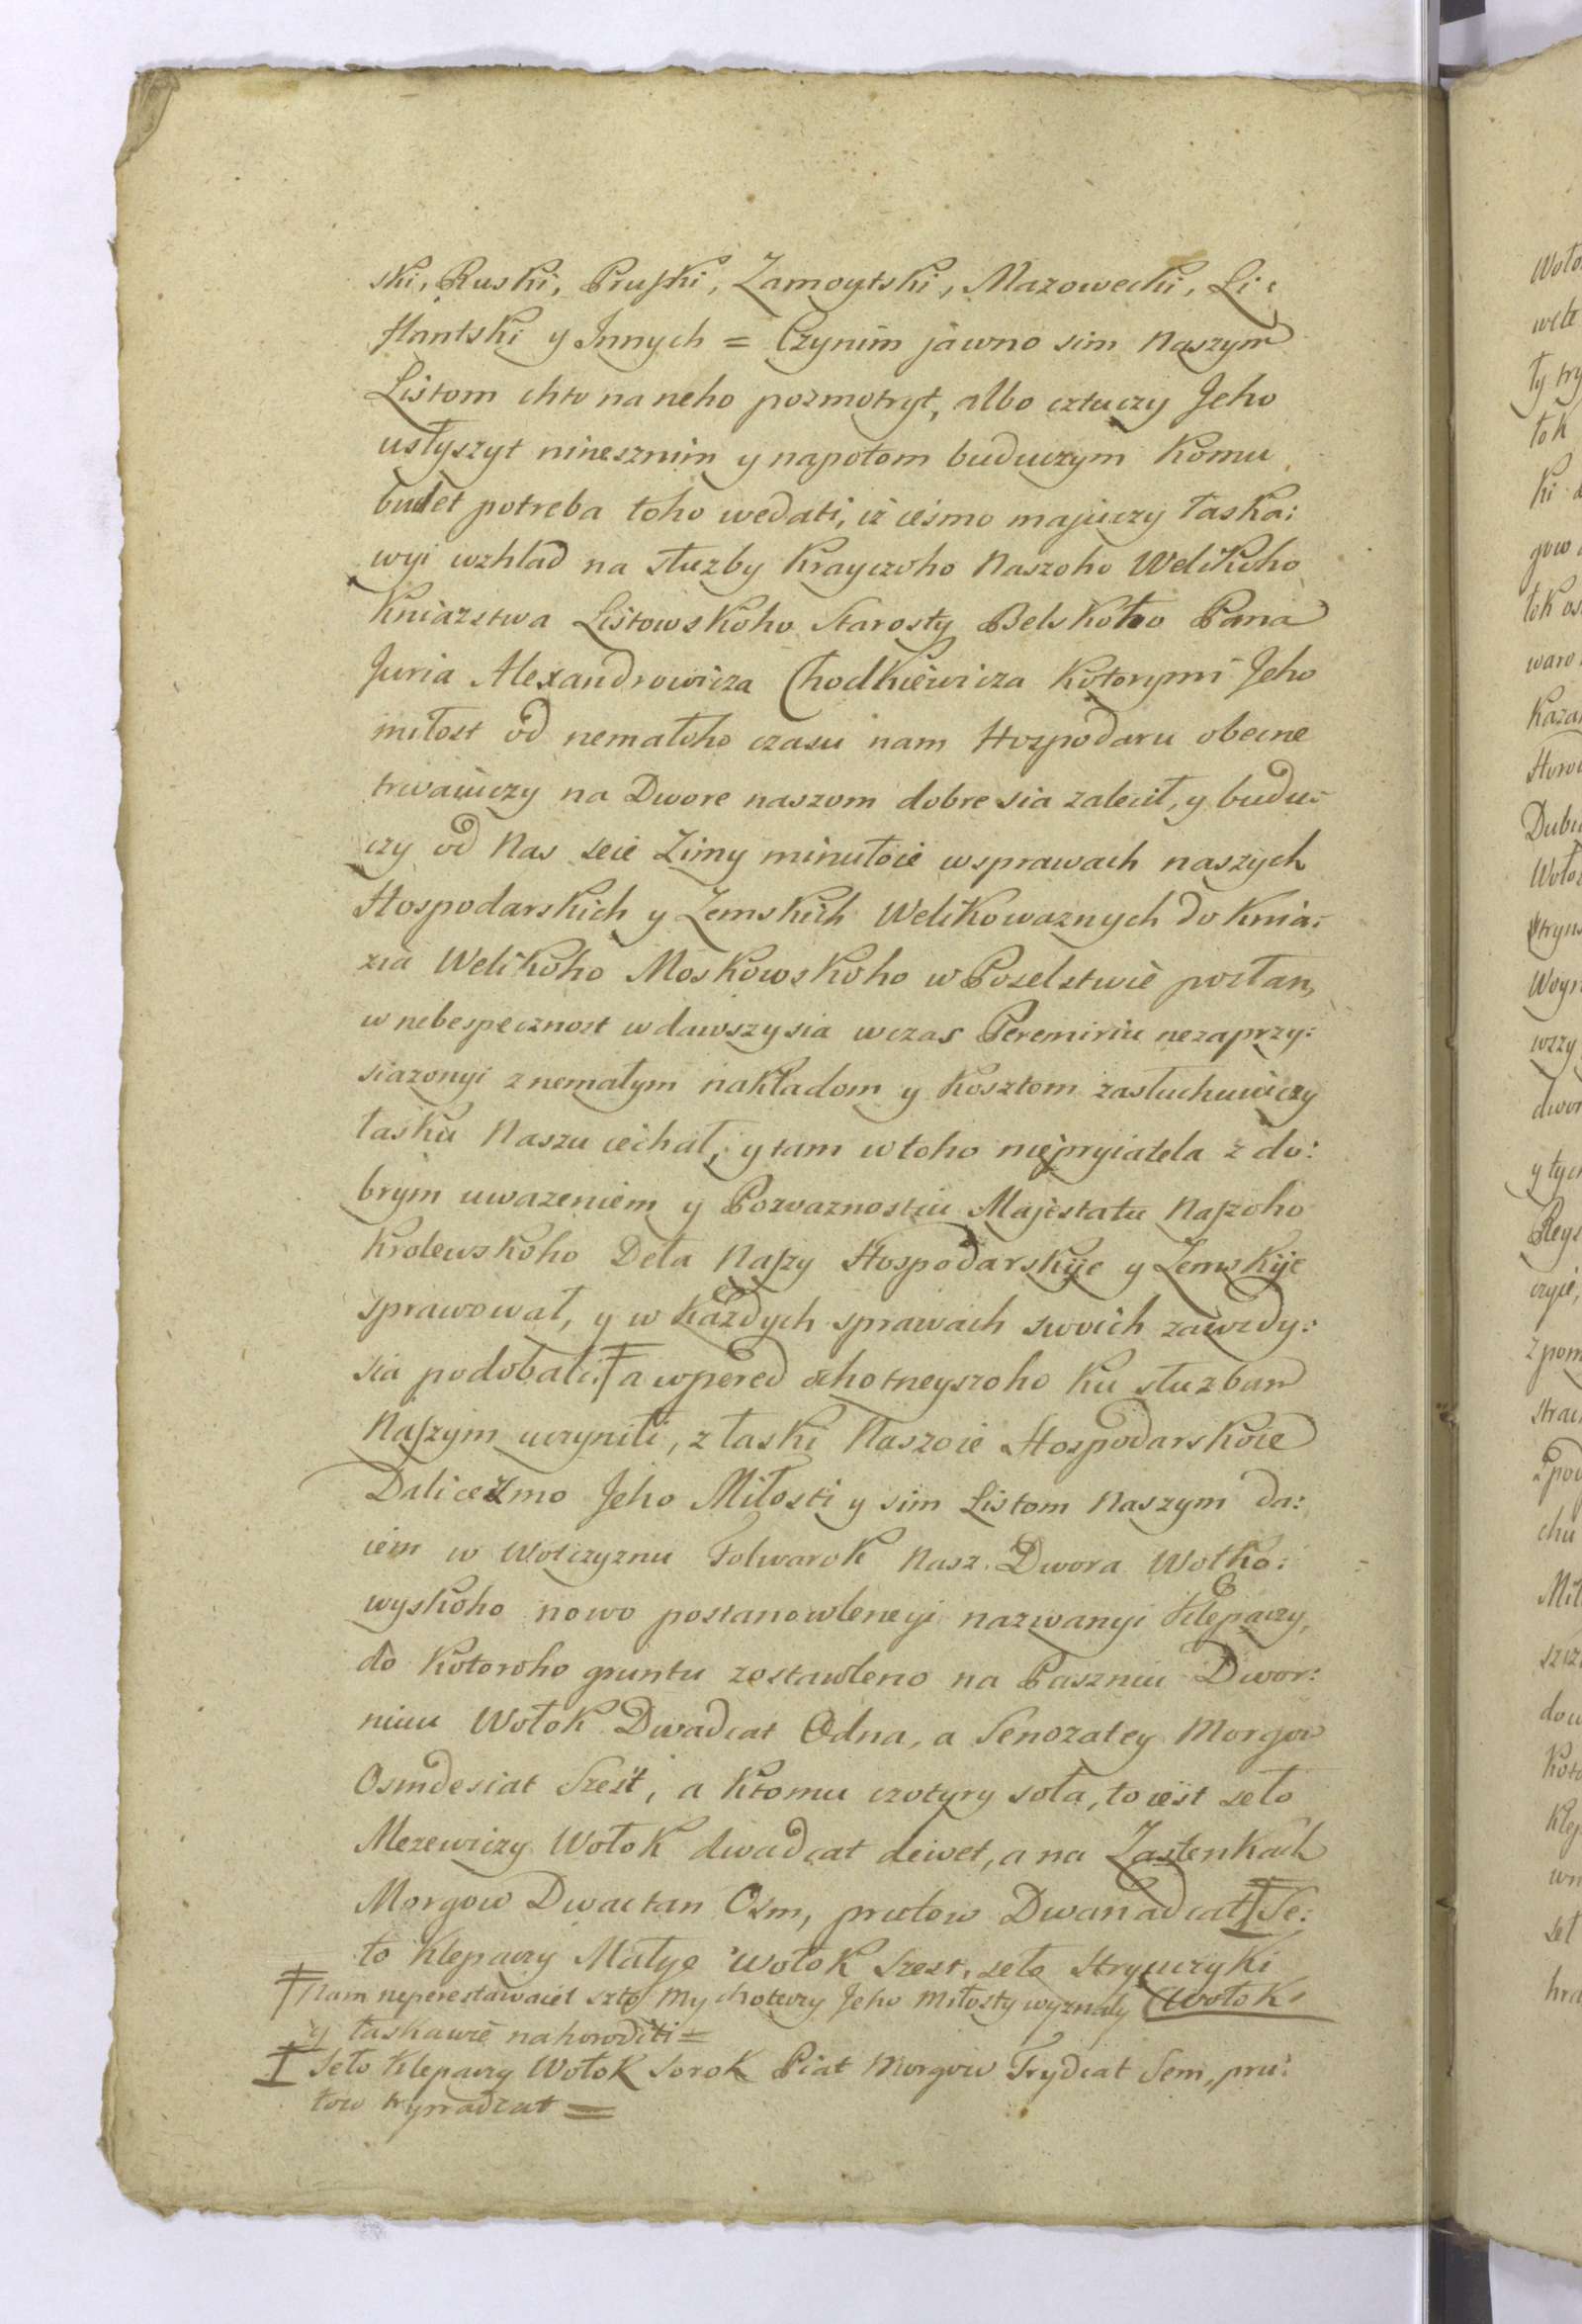 ski, Ruski, Pruski, Zamoytski, Mazowecki, Li:
flantski y Innych = Czynim jawno sim Naszym
Listom chto na neho pozmotryt, albo cztuczy Jeho
usłyszyt ninesznim y napotom buduczym Komu
budet potreba toho wedati, iż iesmo majuczy łaska:
wyi wzhlad na służby Krayczoho Naszoho Welikoho
Kniazstwa Litowskoho Starosty Belskoho Pana
Juria Alexandrowicza Chodkiewicza Kotorymi Jeho
miłost od nemałoho czasu nam Hospodaru obecne
trwaiuczy na Dwore naszom dobre sia zalecił, y budu:
czy od Nas seie Zimy minułoie w sprawach naszych
Hospodarskich y Zemskich Welikoważnych do Knia:
zia Welikoho Moskowskoho w Poselstwie posłan,
w nebespecznost wdawszy sia wczas Peremiriu nezaprzy:
siazonyi z nemałym nakładom y Kosztom zasłuchuiuczy
łasku Naszu iechał, y tam w toho niepryiatela z do:
brym uwazeniem y Pozwaznostiu Majestatu Naszoho
Krolewskoho Deła Naszy Hospodarskije y Zemskije
sprawował, y w Każdych sprawach swoich zawzdy:
sia podobati ǂ a wpered ochotneyszoho Ku służbam
Naszym uczynili, z łaski Naszoie Hospodarskoie
Dali ieśmo Jeho Miłosti y sim Listom Naszym da:
iem w Wotczyznu Folwarok Nasz Dwora Wołko:
wyskoho nowo postanowleneyi nazwanyi Klepaczy,
do Kotoroho gruntu zostawleno na Paszniu Dwor:
nuiu Wołok Dwadcat Odna, a Senozatey Morgow
Osmdesiat Szest, a Ktomu czotyry soła, to iest seło
Mezewiczy Wołok dwadcat dewet, a na Zastenkach
Morgow Dwactan Osm, prutow Dwanadcat ǂ Se:
ło Klepaczy Małye Wołok Szest, seło Stryuczyki
Wołok
ǂ Nam neperestawaiet szto My chotuczy Jeho Miłosty wyznaly
y łaskawie nahoroditi =
ǂ Seło Klepaczy Wołok Sorok Piat Morgow Trydcat Sem, pru:
tow trynadcat =